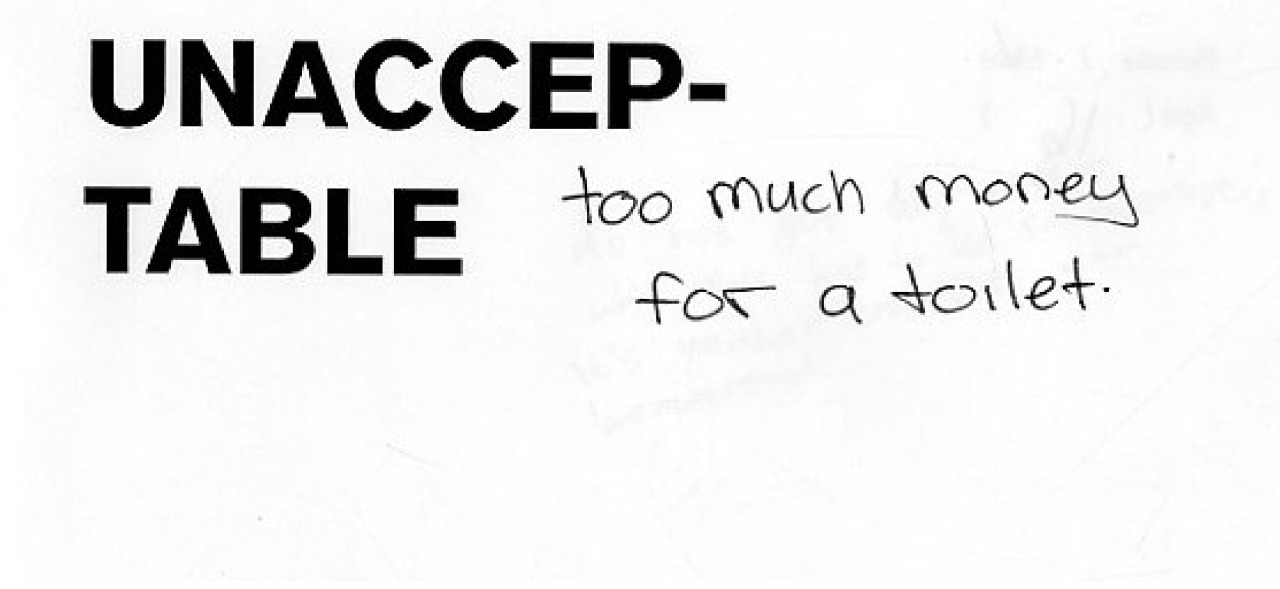 UNACCEP-
TABLE
too much money
for a toilet.